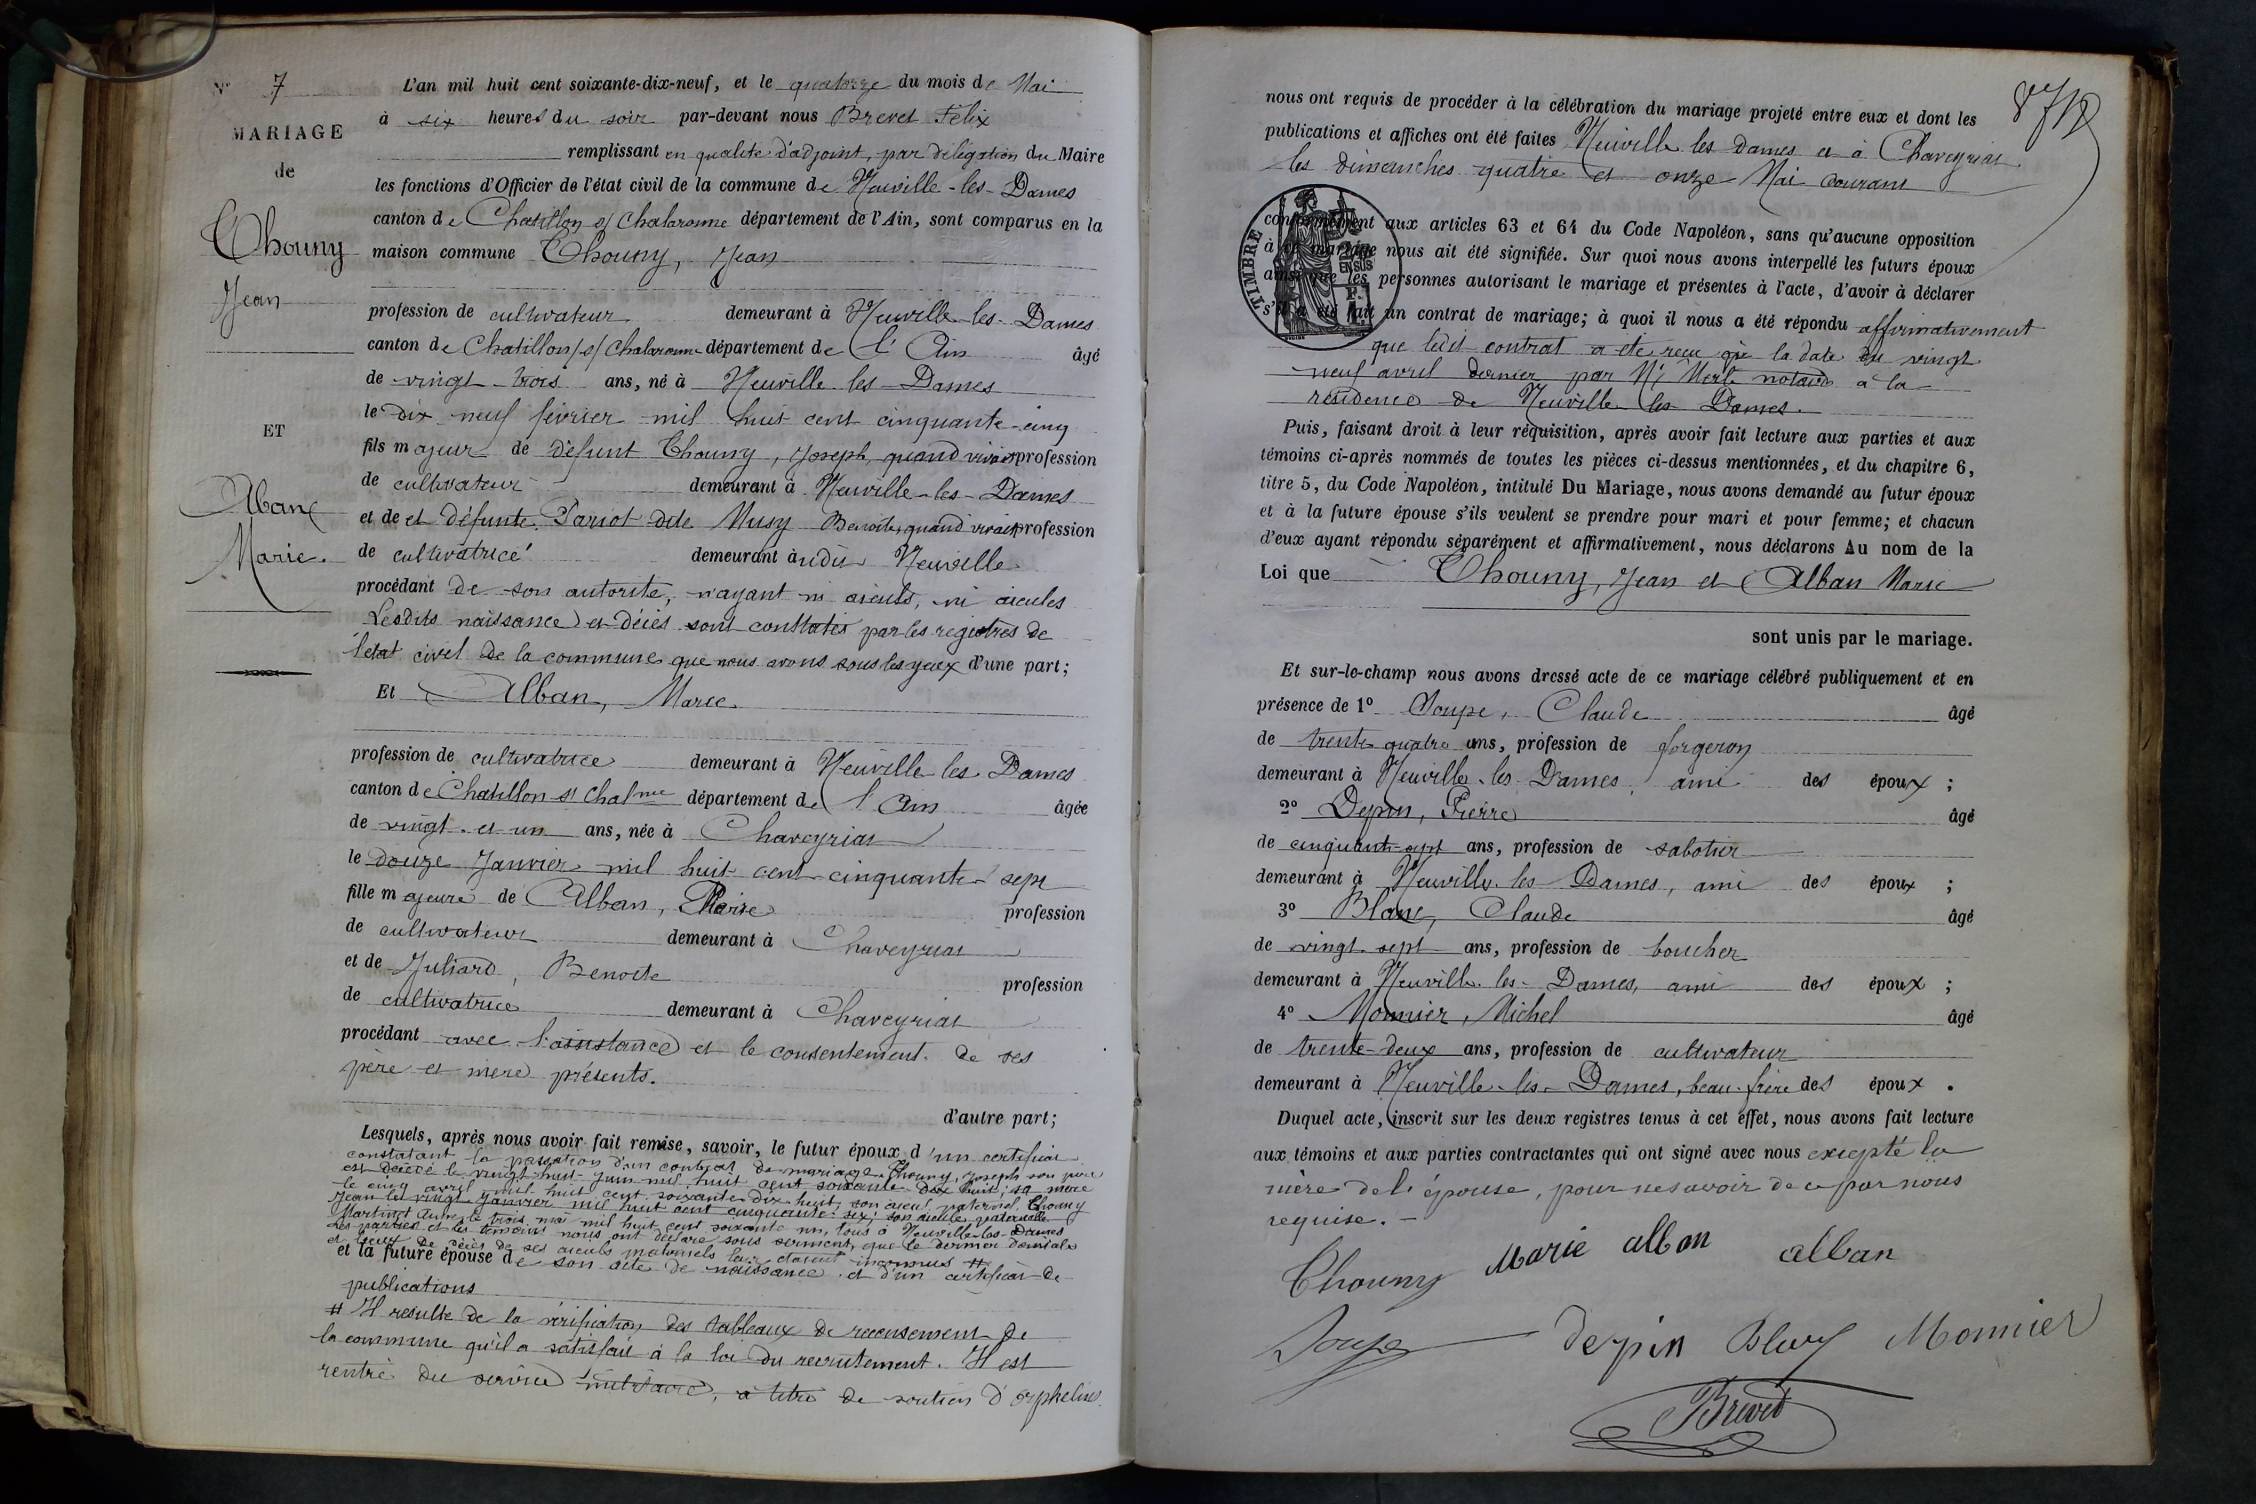 N° 7
MARIAGE
de
Chouny
Jean
ET
Alban
Marie.
L'an mil huit cent soixante-dix-neuf, et le quatorze du mois de Mai
à six heures du soir par-devant nous Brevet Félix
remplissant en qualité d'adjoint, par délégation du Maire
les fonctions d'Officier de l'état civil de la commune de Neuville-les-Dames
canton de Chatillon s/ Chalaronne département de l'Ain, sont comparus en la
maison commune Chouny, Jean
profession de cultivateur demeurant à Neuville-les-Dames
canton de Chatillon/s/Chalaronne département de l'Ain âgé
de vingt-trois ans, né à Neuville les Dames
le dix neuf février mil huit cent cinquante-cinq
fils majeur de défunt Chouny, Joseph, quand vivait profession
de cultivateur demeurant à Neuville-les-Dames
et de et défunte, Pariot dite Musy Benoite, quand vivait profession
de cultivatrice demeurant à udit Neuville
procédant de son autorité, n'ayant ni aieuls, ni aieules
Lesdits naissance et décès sont constatés par les registres de
l'état civil de la commune que nous avons sous les yeux d'une part;
Et Alban, Marie.
profession de cultivatrice demeurant à Neuville les Dames
canton de Chatillon s/ Chalnne département de l'Ain âgée
de vingt et un ans, née à Chaveyriat
le douze Janvier mil huit cent cinquante sept
fille majeure de Alban, Pierre profession
de cultivateur demeurant à Chaveyriat
et de Juliard, Benoite profession
de cultivatrice demeurant à Chaveyriat
procédant avec l'assistance et le consentement de ses
père et mère présents.
d'autre part;
Lesquels, après nous avoir fait remise, savoir, le futur époux d'un certificat
constatant la passation d'un contrat de mariage. Chouny, Joseph son père
est décédé le vingt-huit Juin mil huit cent soixante dix huit; sa mère
le cinq avril mil huit cent soixante dix huit, son aieul paternel Chouny
Jean le vingt janvier mil huit cent cinquante-six; son aieule paternelle
Martinet Anne, le trois mai mil huit cent soixante un, tous à Neuville-les-Dames
Les parties et les témoins nous ont déclaré sous serment, que le dernier domicile
et lieux de décès de ses aieuls maternels leur étaient inconnus #
et la future épouse de son acte de naissance et d'un certificat de
publications
# Il résulte de la vérification des tableaux de recensement de
la commune qu'il a satisfait à la loi du recrutement. Il est
rentré du service militaire, à titre de soutien d'orphelins.
nous ont requis de procéder à la célébration du mariage projeté entre eux et dont les
publications et affiches ont été faites Neuville les Dames et à Chaveyriat
les dimanches quatre et onze Mai courant
TIMBRE
conformément aux articles 63 et 64 du Code Napoléon, sans qu'aucune opposition
à ce mariage nous ait été signifiée. Sur quoi nous avons interpellé les futurs époux
ainsi que les personnes autorisant le mariage et présentes à l'acte, d'avoir à déclarer
s'il a été fait un contrat de mariage; à quoi il nous a été répondu affirmativement
que ledit contrat a été reçu à la date du vingt
neuf avril dernier par Me Merle notaire à la
résidence de Neuville les Dames.
Puis, faisant droit à leur réquisition, après avoir fait lecture aux parties et aux
témoins ci-après nommés de toutes les pièces ci-dessus mentionnées, et du chapitre 6,
titre 5, du Code Napoléon, intitulé Du Mariage, nous avons demandé au futur époux
et à la future épouse s'ils veulent se prendre pour mari et pour femme; et chacun
d'eux ayant répondu séparément et affirmativement, nous déclarons Au nom de la
Loi que Chouny, Jean et Alban Marie
sont unis par le mariage.
Et sur-le-champ nous avons dressé acte de ce mariage célébré publiquement et en
présence de 1° Soupe, Claude âgé
de trente quatre ans, profession de forgeron
demeurant à Neuville-les-Dames, ami des époux ;
2° Depin, Pierre âgé
de cinquante-sept ans, profession de sabotier
demeurant à Neuville-les Dames, ami des époux ;
3° Blanc, Claude âgé
de vingt sept ans, profession de boucher
demeurant à Neuville-les-Dames, ami des époux ;
4° Monnier, Michel âgé
de trente-deux ans, profession de cultivateur
demeurant à Neuville-les-Dames, beau-frère des époux .
Duquel acte, inscrit sur les deux registres tenus à cet effet, nous avons fait lecture
aux témoins et aux parties contractantes qui ont signé avec nous excepté la
mère de l'épouse, pour ne savoir de ce par nous
requise. -
Chouny Marie alban alban
Soupe depin Monnier
Brevet